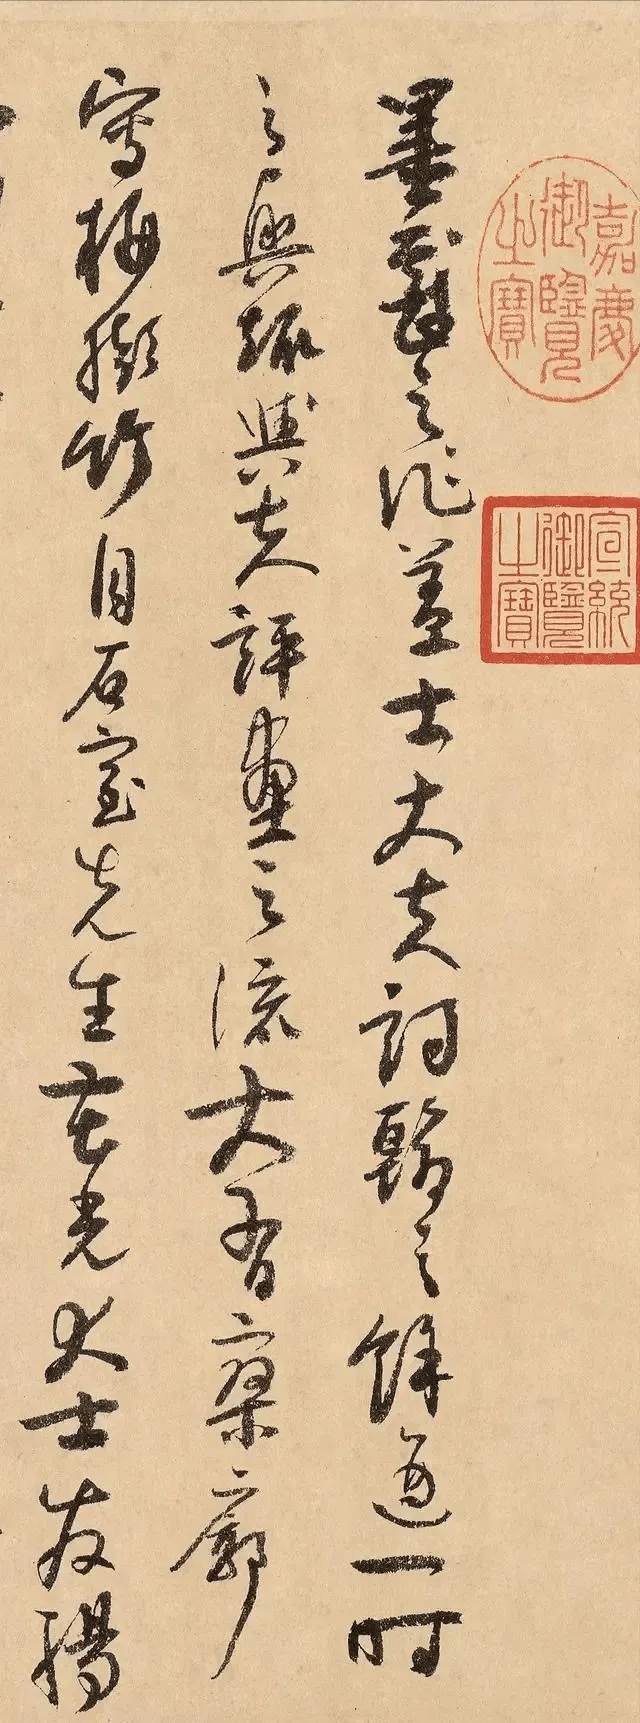 嘉慶御覽之寶
宣統御覽之寶
墨戲之作蓋士大夫詞翰之餘適一時
之興趣與夫評畫之流大有寥廓
寫梅擬竹自石室先生花光大士发揚